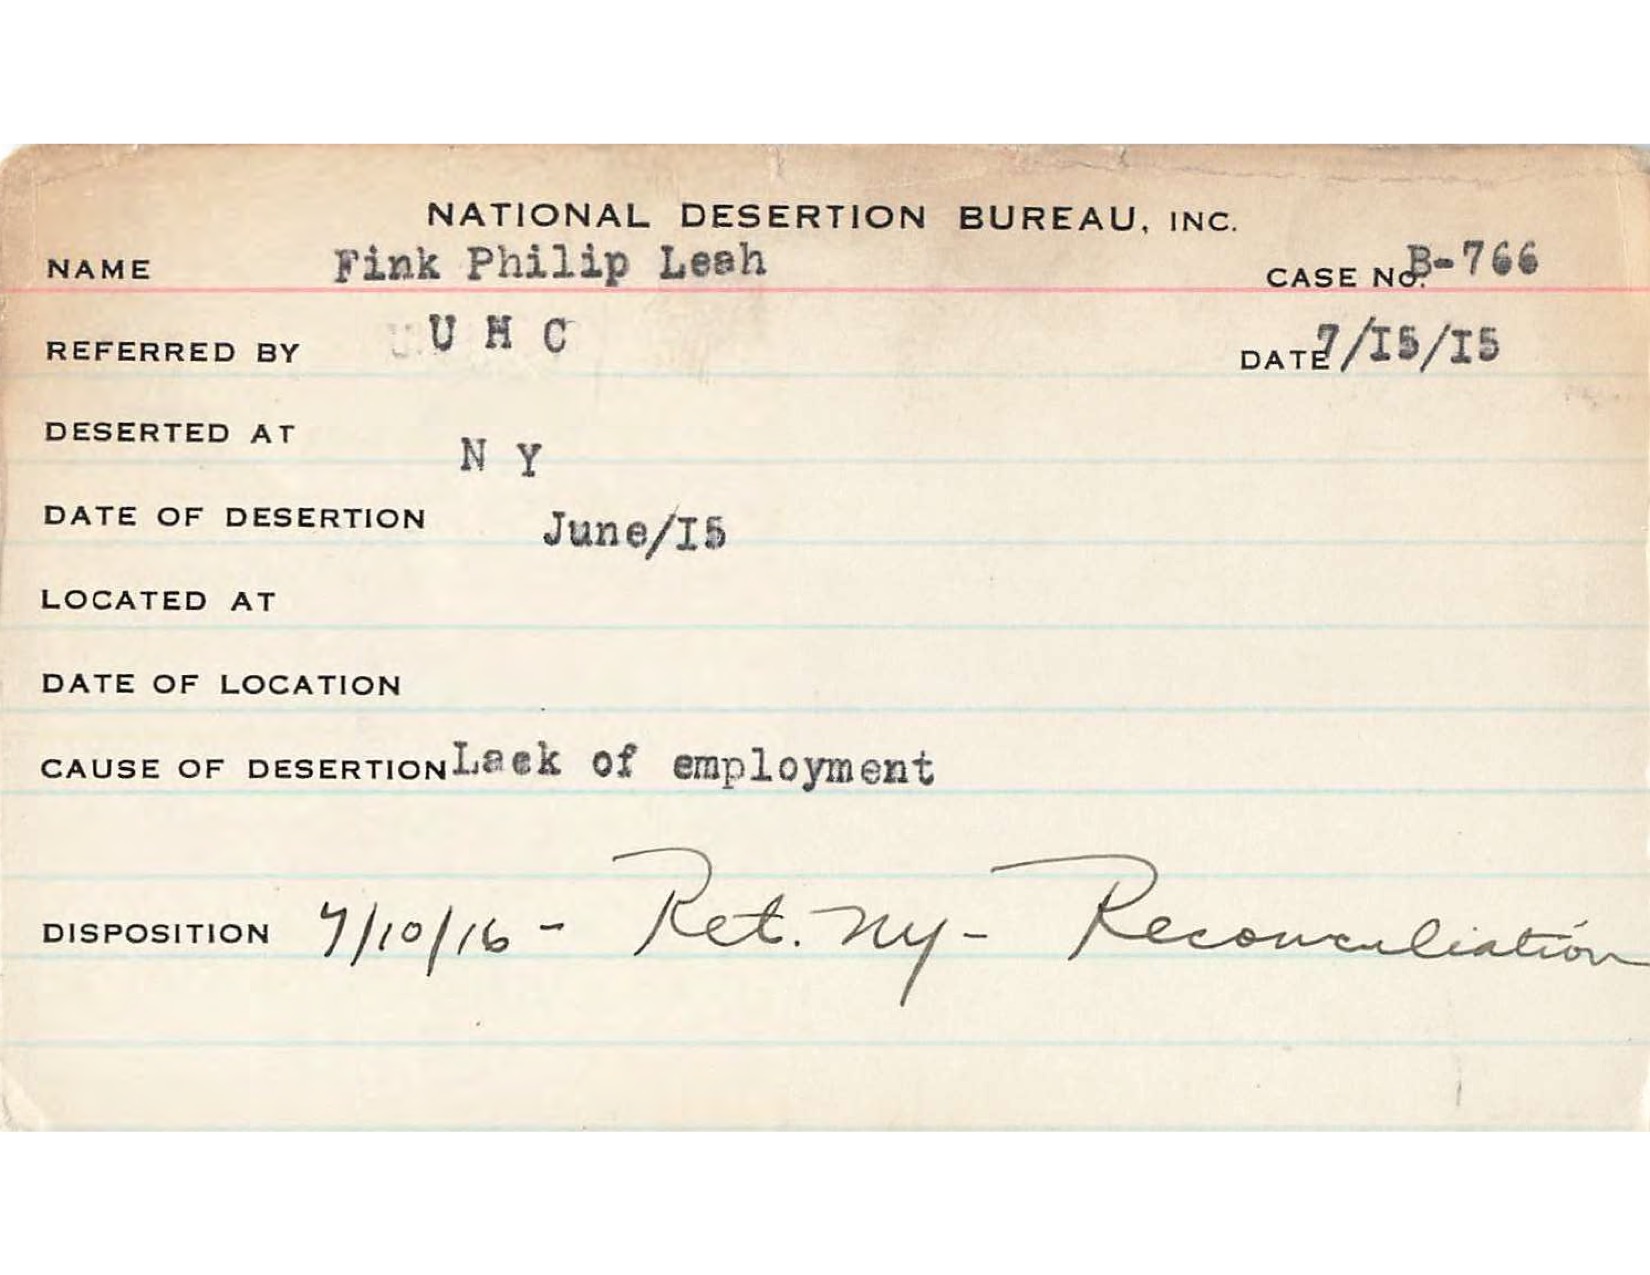 NATIONAL DESERTION BUREAU, INC.
NAME Fink Philip Leah CASE NO. B-766
REFERRED BY U H C DATE 7/I5/I5
DESERTED AT N Y
DATE OF DESERTION June/I5
LOCATED AT
DATE OF LOCATION
CAUSE OF DESERTION Lack of employment
DISPOSITION 7/10/16 - Ret. Ny - Reconciliation